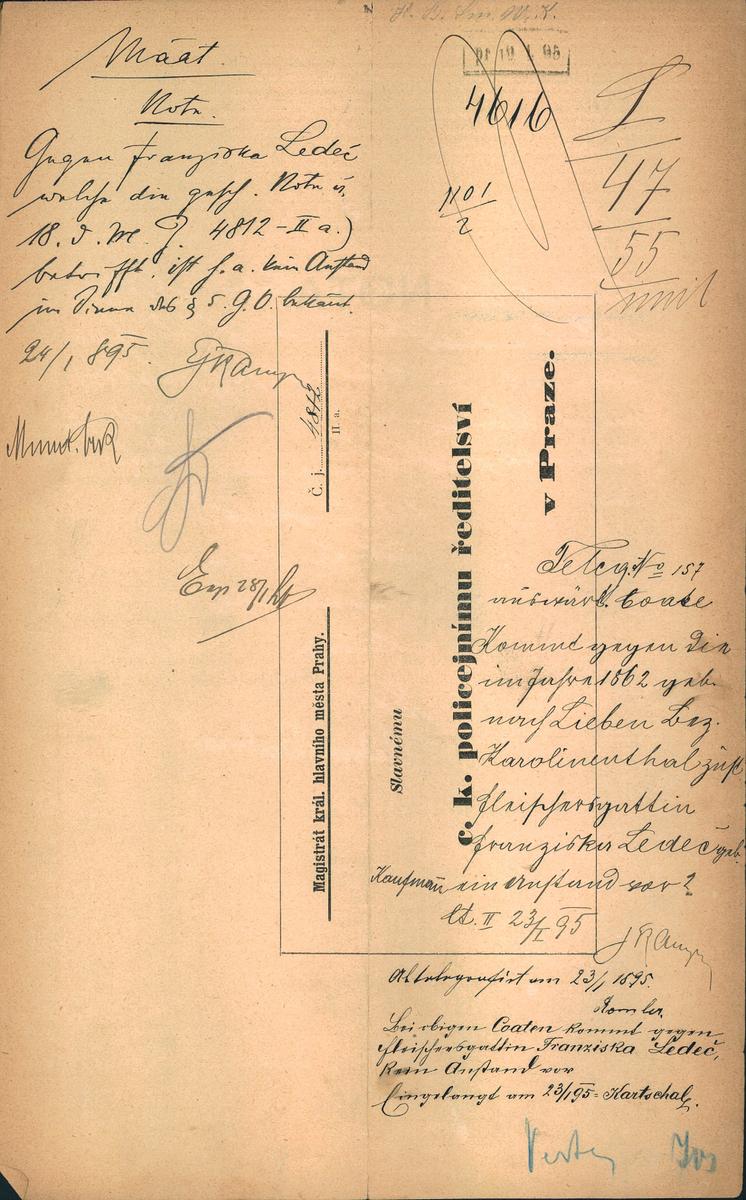 Note.
Gegen Franziska Ledeč
welche die gesch. Note v.
18. d. M. Z. 4812-II a.)
betrifft, ist h. a. kein Anstand
im Sinne des § 5. G. O. bekannt.
24/1 895.
Exp 28/1
19 1 95
4616
1101/2
47
55
Č. j. 4812
II. a.
Magistrát král. hlavního města Prahy.
Slavnému
c. k. policejnímu ředitelství
v Praze.
Teleg. No 157
auswärt.
Kommt gegen die
im Jahre 1862 geb.
nach Lieben Bez.
Karolinenthal zust.
Fleischersgattin
Franziska Ledeč geb.
Kaufmann ein Anstand vor?
II 23/I 95
Abtelegrafirt am 23/1 1895.
Bei obigen Coaten kommt gegen
Fleischersgattin Franziska Ledeč,
kein Anstand vor
Eingelangt am 23/1 95 = Kartschal